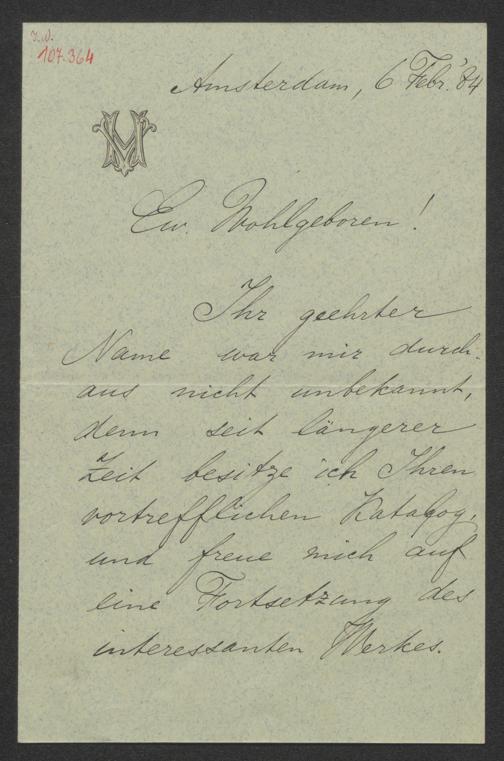 I.N.
107.364
Amsterdam, 6 Febr. '84
Ew. Wohlgeboren!
Ihr geehrter
Name war mir durch-
aus nicht unbekannt,
denn seit längerer
Zeit besitze ich Ihren
vortrefflichen Katalog,
und freue mich auf
eine Fortsetzung des
interessanten Werkes.